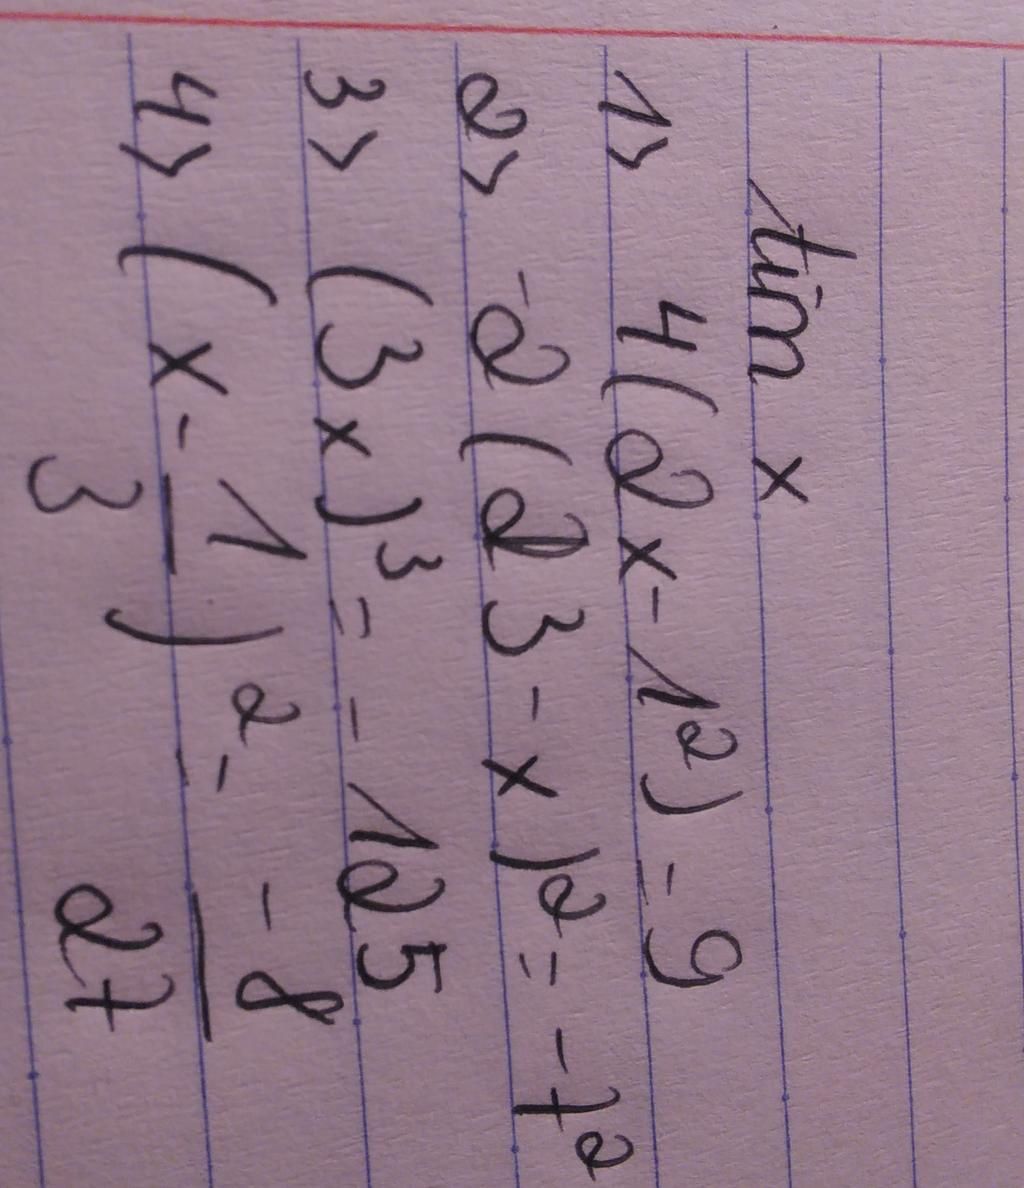 tìm x
1> 4(2x-1²) = 9
2> -2(23-x)² = -72
3> (3x)³ = -125
4> (x-1/3)² = -8/27